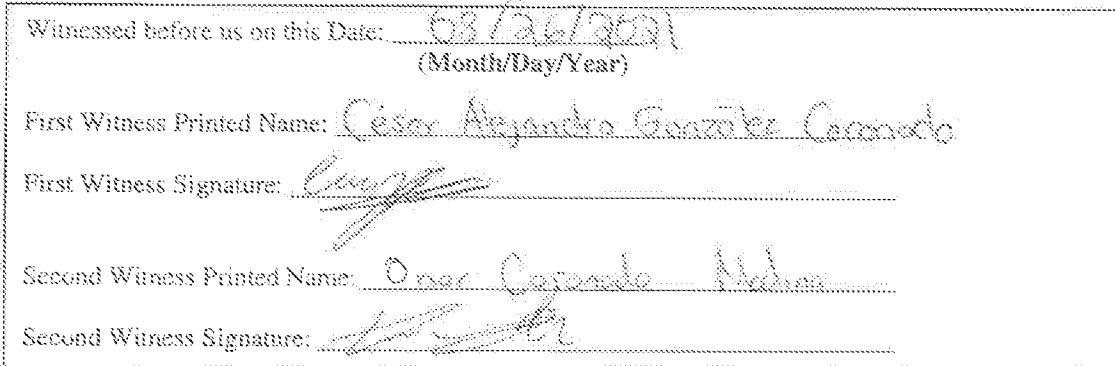 Witnessed before us on this Date: 08/26/2021
(Month/Day/Year)
First Witness Printed Name: César Alejandro González Coronado
First Witness Signature:
Second Witness Printed Name: Omar Coronado Medina
Second Witness Signature: